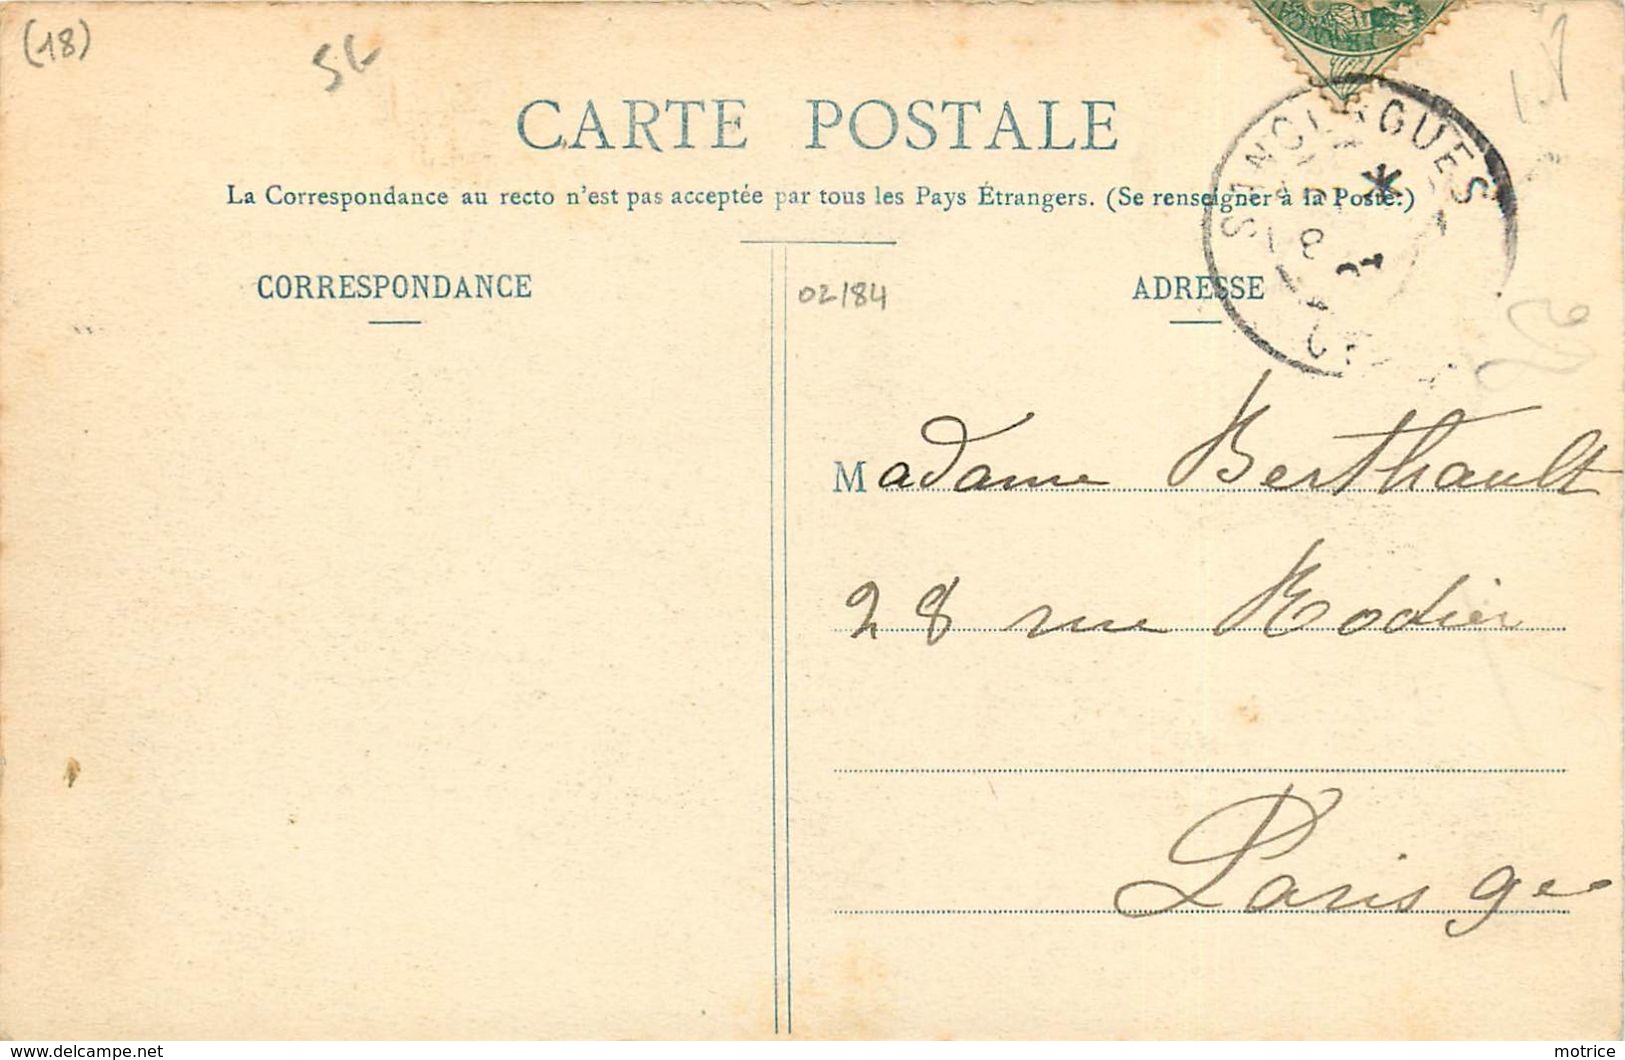 (18)
CARTE POSTALE
La Correspondance au recto n'est pas acceptée par tous les Pays Étrangers. (Se renseigner à la Poste.)
SANCERGUES
CORRESPONDANCE
02/84
ADRESSE
Madame Berthault
28 rue Rodier
Paris 9e
www.delcampe.net
motrice